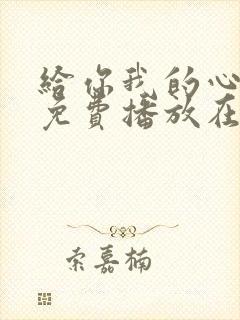 给你我的心
免费播放在
索嘉楠